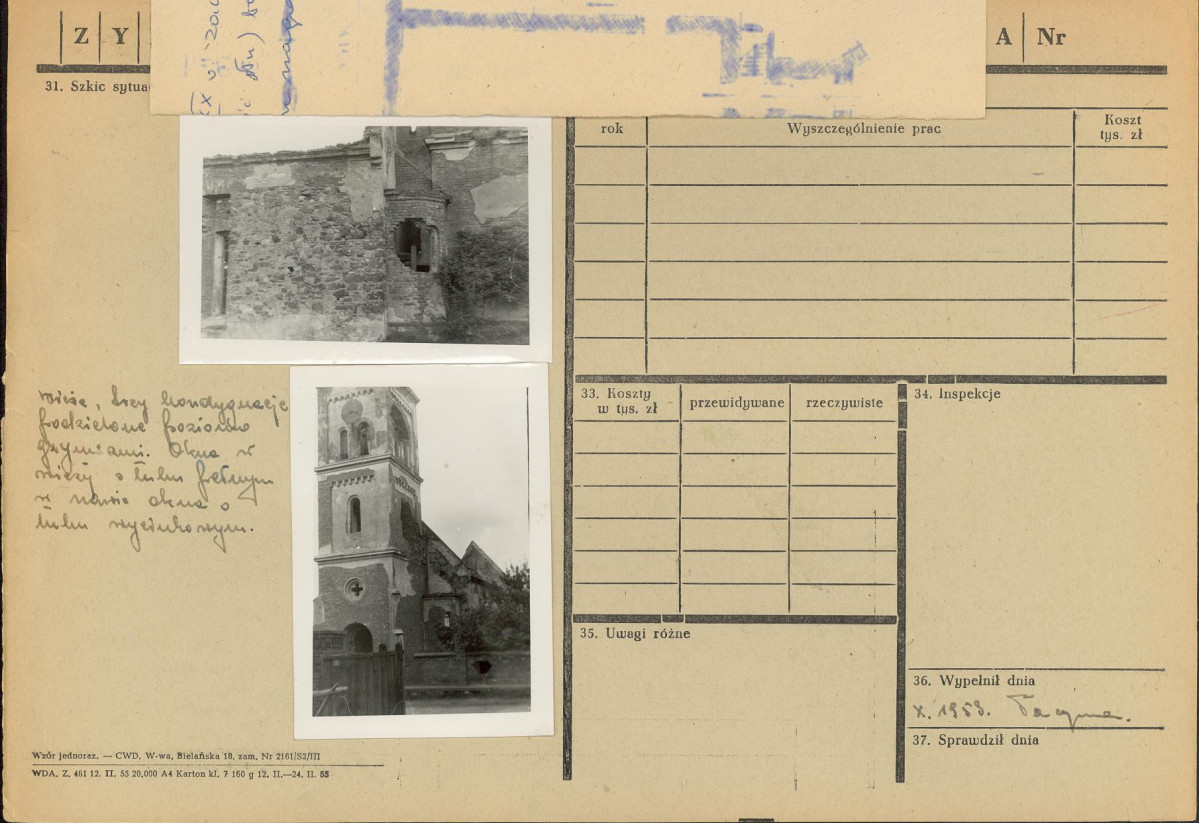 Z Y
A Nr
31. Szkic sytua
XX
rok
Wyszczególnienie prac
Koszt
tys. zł
wieże, trzy kondygnacje
podzielone poziomo
gzymsami. Okna w
wieży o łuku pełnym
w nawie okna o
łuku wycinkowym.
33. Koszty
w tys. zł
przewidywane
rzeczywiste
34. Inspekcje
35. Uwagi różne
36. Wypełnił dnia
X. 1959.
37. Sprawdził dnia
Wzór jednoraz. — CWD, W-wa, Bielańska 18, zam. Nr 2161/S2/III
WDA. Z. 461 12. II. 55 20.000 A4 Karton kl. 7 160 g 12. II.—24. II. 55